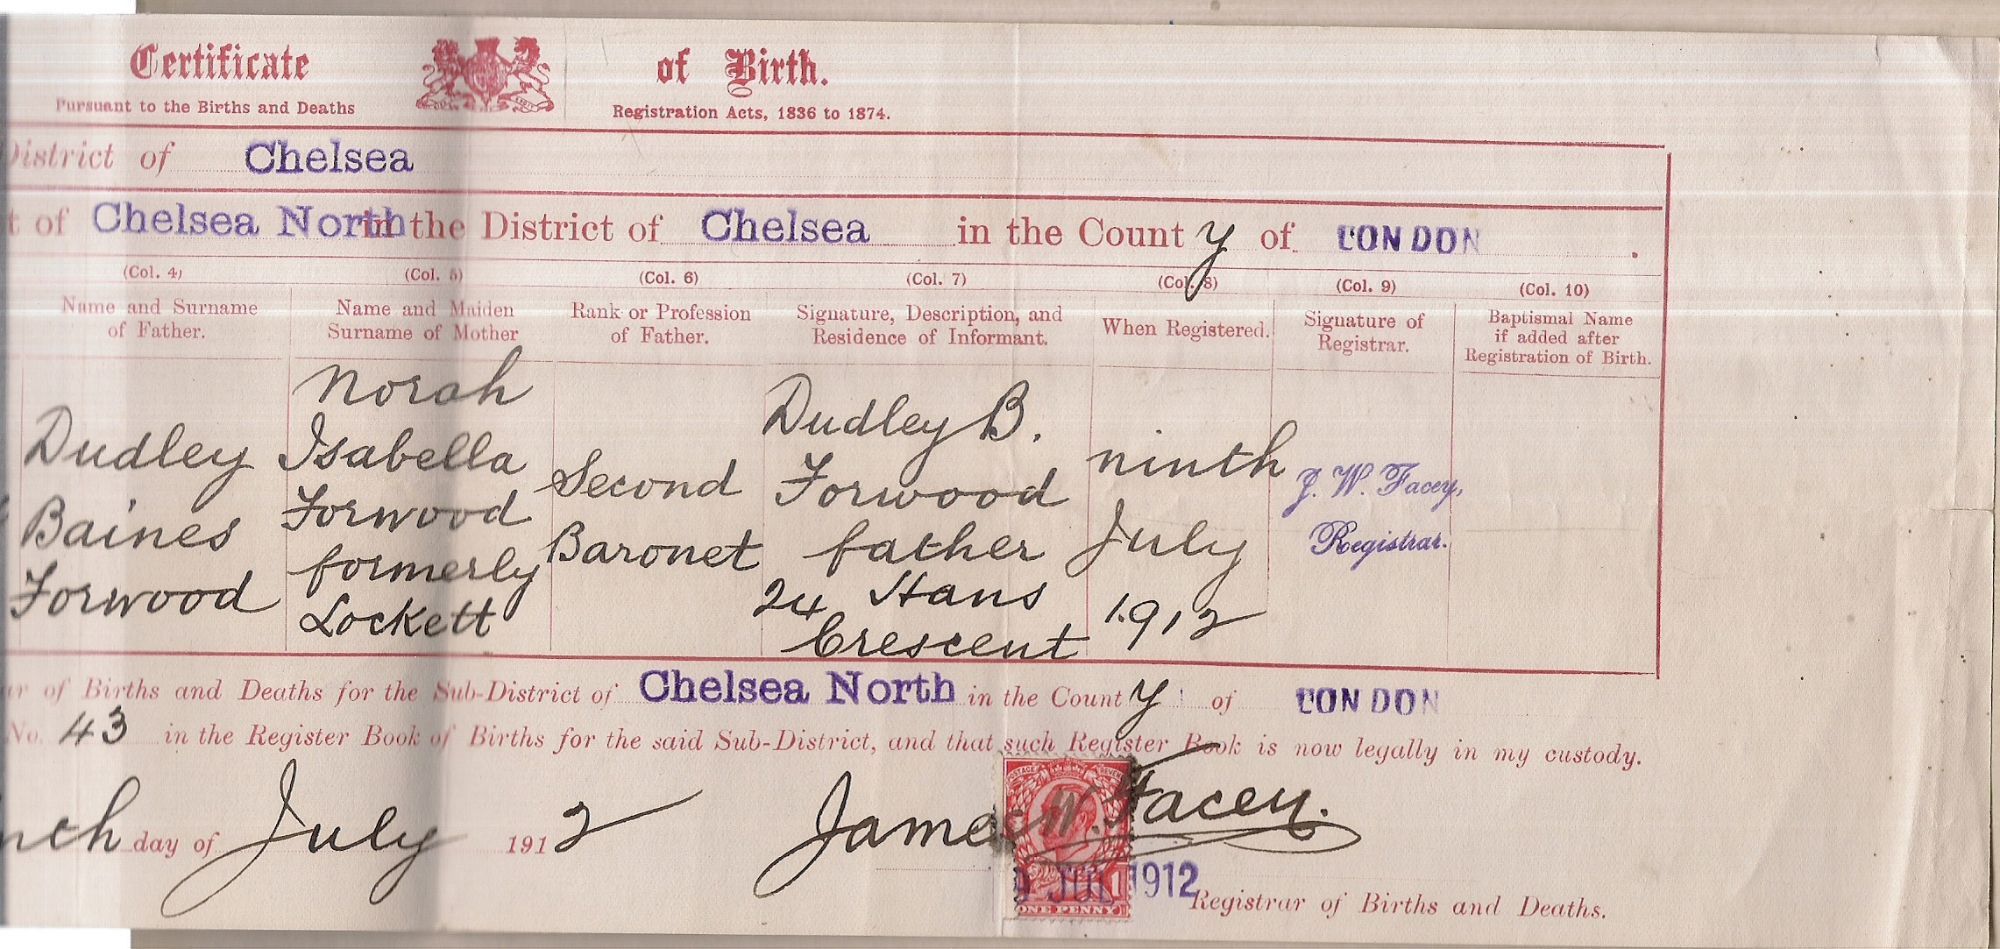 Certificate of Birth.
Pursuant to the Births and Deaths Registration Acts, 1836 to 1874.
District of Chelsea
of Chelsea North in the District of Chelsea in the County of LONDON.
(Col. 4) (Col. 5) (Col. 6) (Col. 7) (Col. 8) (Col. 9) (Col. 10)
Name and Surname
of Father.
Name and Maiden
Surname of Mother
Rank or Profession
of Father.
Signature, Description, and
Residence of Informant.
When Registered.
Signature of
Registrar.
Baptismal Name
if added after
Registration of Birth.
Dudley
Baines
Forwood
Norah
Isabella
Forwood
formerly
Lockett
Second
Baronet
Dudley B.
Forwood
father
24 Hans
Crescent
ninth
July
1912
J. W. Facey,
Registrar.
of Births and Deaths for the Sub-District of Chelsea North in the County of LONDON
No. 43 in the Register Book of Births for the said Sub-District, and that such Register Book is now legally in my custody.
day of July 1912 James W. Facey.
POSTAGE
JUL 1912
ONE PENNY
Registrar of Births and Deaths.